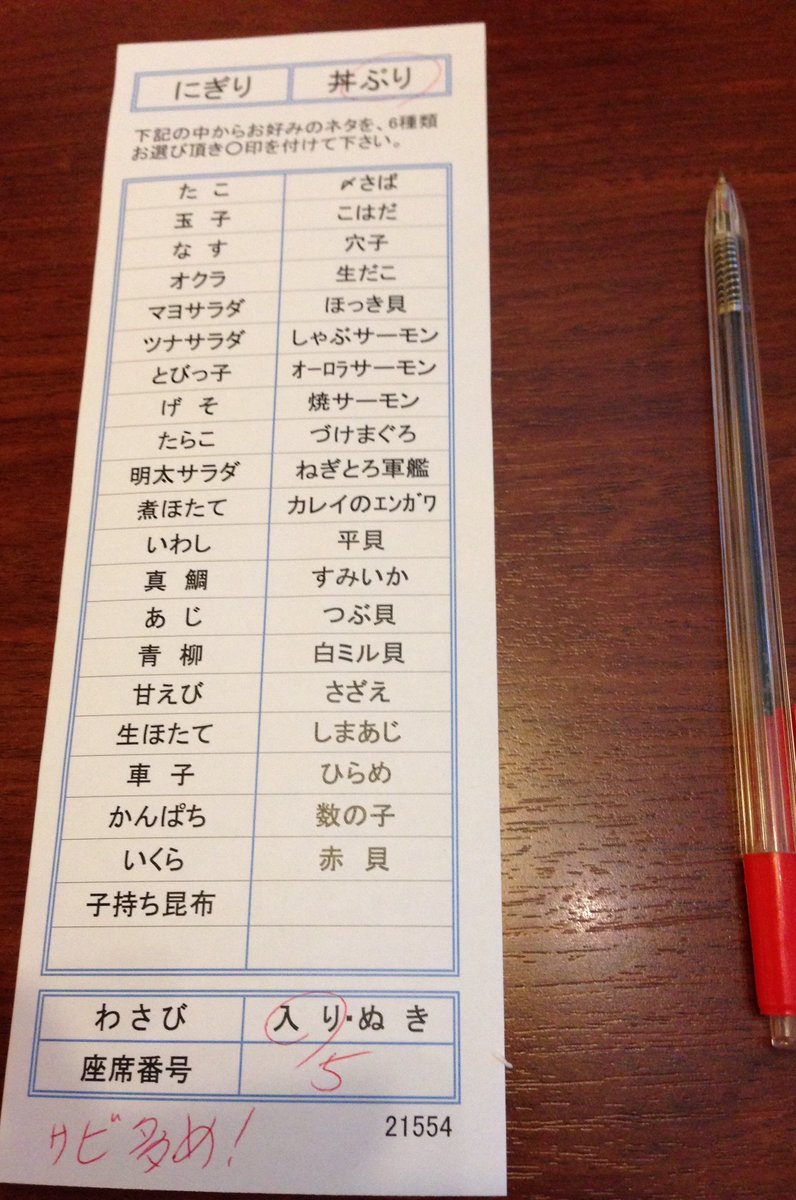 にぎり 丼ぶり
下記の中からお好みのネタを、6種類
お選び頂き〇印を付けて下さい。
たこ 〆さば
玉子 こはだ
なす 穴子
オクラ 生だこ
マヨサラダ ほっき貝
ツナサラダ しゃぶサーモン
とびっ子 ｵｰﾛﾗサーモン
げそ 焼サーモン
たらこ づけまぐろ
明太サラダ ねぎとろ軍艦
煮ほたて カレイのｴﾝｶﾞﾜ
いわし 平貝
真鯛 すみいか
あじ つぶ貝
青柳 白ミル貝
甘えび さざえ
生ほたて しまあじ
車子 ひらめ
かんぱち 数の子
いくら 赤貝
子持ち昆布
わさび 入り・ぬき
座席番号 5
21554
サビ多め!